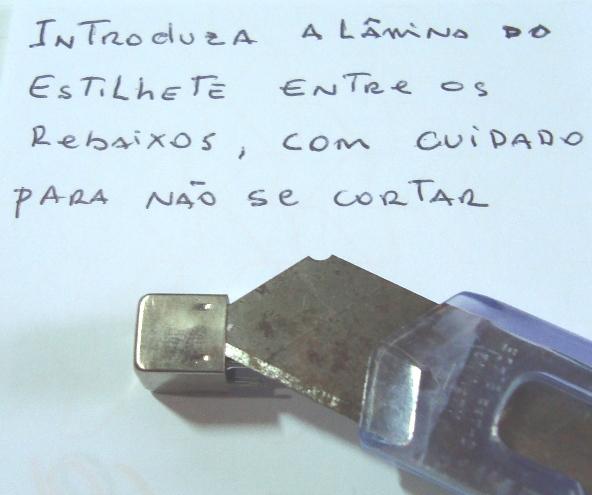 INTRODUZA A LÂMINA DO
ESTILHETE ENTRE OS
REBAIXOS, COM CUIDADO
PARA NÃO SE CORTAR